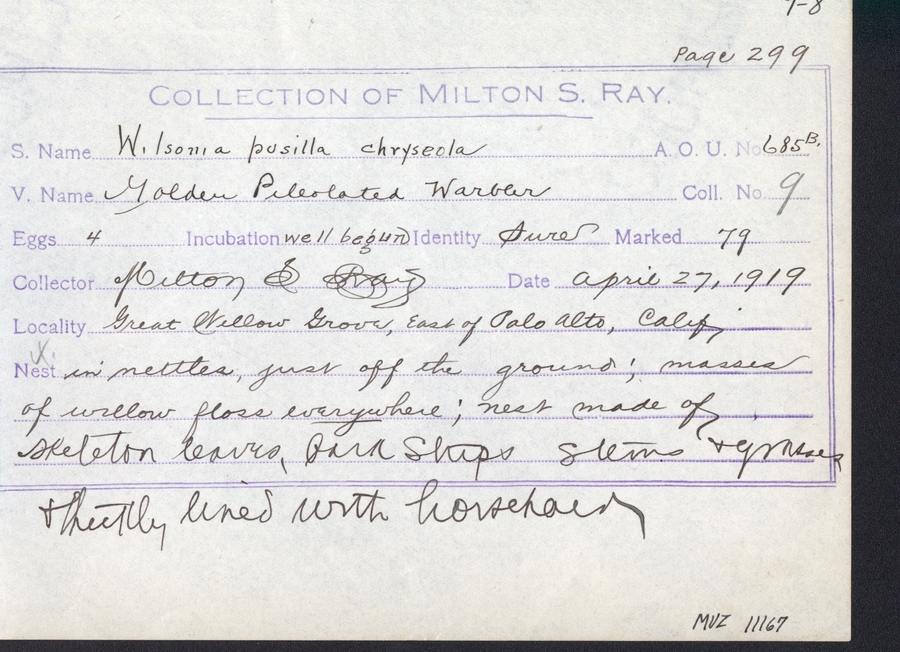 7-8
Page 299
COLLECTION OF MILTON S. RAY.
S. Name Wilsonia pusilla chryseola A. O. U. No 685B.
V. Name Golden Pileolated Warbler Coll. No. 9
Eggs 4 Incubation well begun Identity Sure Marked 79
Collector Milton S Ray Date april 27, 1919
Locality Great Willow Grove, East of Palo Alto, Calif,
X.
Nest in nettles, just off the ground; masses
of willow floss everywhere; nest made of
skeleton leaves, bark strips stems + grasses
lined with horsehair
MVZ 11167